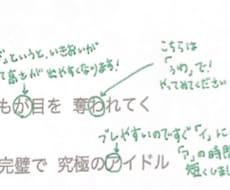 というと、いきおいが
て高さが出やすくなります!
こちらは
「うわ」で!
やってみてください
もが目を 奪われてく
ブレやすいのですぐ「イ」に
「ア」の時間
短くし
完璧で 究極のアイドル